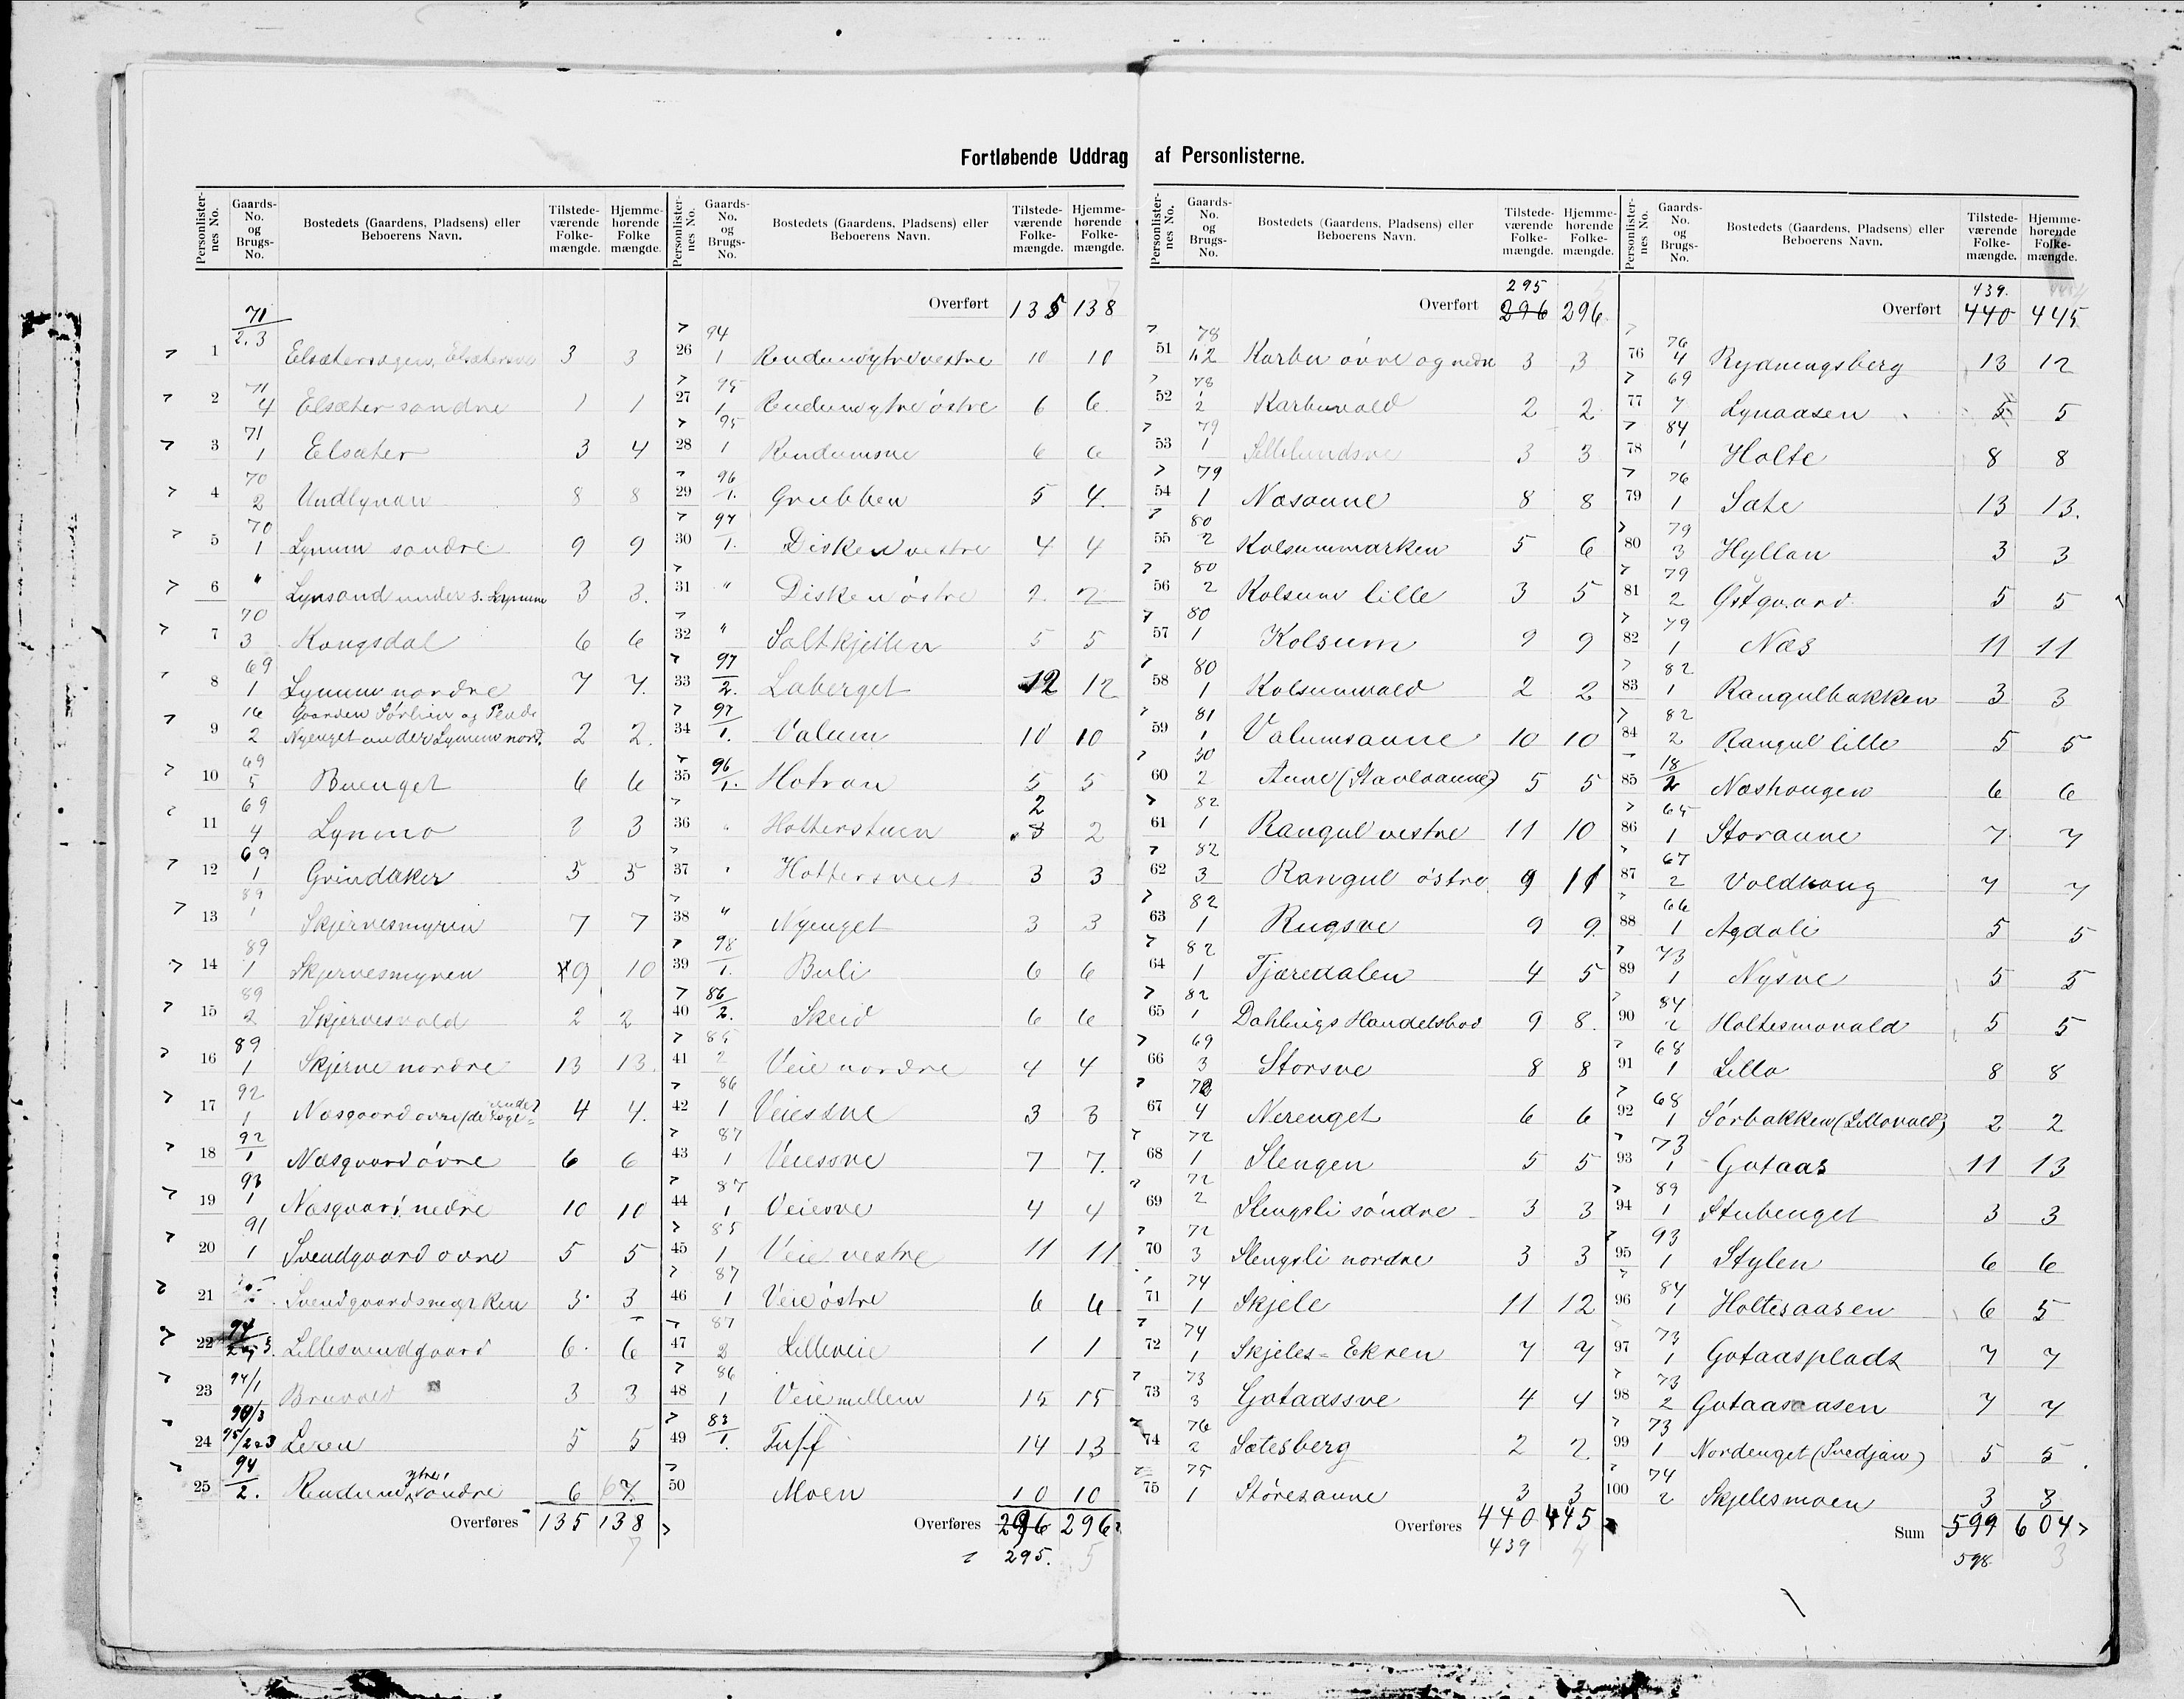 Fortløbende Uddrag af Personlisterne.
Personlister-nes No. Gaards-No. og Brugs-No. Bostedets (Gaardens, Pladsens) eller Beboerens Navn. Tilstede-værende Folke-mængde. Hjemme-hørende Folke mængde.
71
2.3
1 3 3
2 71/4 Elsæter søndre 1 1
3 71/1 Elsæter 3 4
4 70/2 Undlynau 8 8
5 70/1 Lynum søndre 9 9
6 " Lynsand under s. Lynum 3 3.
7 70/3 Kongsdal 6 6
8 69/1 Lynum nordre 7 7.
9 16/2 Gaarden Sørlien og
Nyenget under Lynum nord. 2 2.
10 69/5 Buenget 6 6
11 69/4 Lynmo 3
12 69/1 Grindaker 5 5
13 89/1 Skjervesmyren 7 7
14 89/1 Skjervesmyren 9 10
15 89/2 Skjervesvold 2 2
16 89/1 Skjerve nordre 13 13.
17 92/1 Næsgaard øvre 4 4.
18 92/1 Næsgaard øvre 6 6
19 93/1 Næsgaard nedre 10 10
20 91/1 Svendgaard øvre 5 5
21 Svendgaardsmarken 3 3
22 94 Lillesvendgaard 6. 6
23 94/1 Bruvold 3 3
24 95/2 Leren 5 5
25 94/2. Rendum ytre søndre 6 7.
Overføres 135 138
7
Personlister-nes No. Gaards-No. og Brugs-No. Bostedets (Gaardens, Pladsens) eller Beboerens Navn. Tilstede-værende Folke-mængde. Hjemme-hørende Folke-mængde.
Overført 135 138
26 94/1 Rendum ytre vestre 10 10
27 95/1 Rendum ytre østre 6 6.
28 95/1 Rendumsve 6 6
29 96/1. Grubben 5 4.
30 97/1. Disken vestre 4 4
31 " Disken østre 2. 2
32 " Saltkjellen 5 5
33 97/2. Laberget 12 12
34 97/1. Valum 10 10
35 96/1. Hotran 5 5
36 " Holterstuen 2 2
37 " 3 3
38 " Nyenget 3 3
39 98/1. Buli 6 6
40 86/2. Skeid 6 6
41 85/2 Veie nordre 4 4
42 86/1 Veiesve 3 3
43 87/1 Veiessve 7 7.
44 87/1 Veiesve 4 4
45 85/1 Veie vestre 11 11
46 87/1 Veie østre 6 6
47 87/2 Lilleveie 1 1
48 86/1 Veie mellem 15 15
49 83/1. Tuff 14 13
50 Moen 10 10
Overføres 296 296
295. 5
Personlister-nes No. Gaards-No. og Brugs-No. Bostedets (Gaardens, Pladsens) eller Beboerens Navn. Tilstede-værende Folke-mængde. Hjemme-hørende Folke-mængde.
295
Overført 296 296
51 78/1.2 Karben øvre og nedre 3 3
52 78/2 Karbenvald 2 2
53 79/1 Lillelundsve 3 3
54 79/1 Næsaune 8 8
55 80/2 Kolsummarken 5 6
56 80/2 Kolsum lille 3 5
57 80/1 Kolsum 9 9
58 80/1 Kolsumvald 2 2
59 81/1 Valumsaune 10 10
60 30/2 Aune (Stavloaune) 5 5
61 82/1 Rangul vestre 11 10
62 82/3 Rangul østre 9 11
63 82/1 Rugsve 9 9.
64 82/1 Tjæredalen 4 5
65 82/1 Dahlings Handelsbod 9 8.
66 69/3 Storsve 8 8
67 72/4 Nerenget 6 6
68 72/1 Slengen 5 5
69 72/2 Slengsli søndre 3 3
70 72/3 Slengsli nordre 3 3
71 74/1 Skjele 11 12
72 74/1 Skjeles-Ekren 7 7
73 73/3 Gotaassve 4 4
74 76/2 Sætesberg 2 2
75 75/1 Støresaune 3 3
Overføres 440 445
439
Personlister-nes No. Gaards-No. og Brugs-No. Bostedets (Gaardens, Pladsens) eller Beboerens Navn. Tilstede-værende Folke-mængde. Hjemme-hørende Folke-mængde.
439.
Overført 440 445
76 76/4 Rydningsberg 13 12
77 69/7 Lynaasen 5 5
78 84/1 Holte 8 8
79 76/1 Sæte 13 13.
80 79/3 Hyllan 3 3
81 79/2 Østgaard 5 5
82 79/1 Næs 11 11
83 82/1 Rangulbakken 3 3
84 82/2 Rangul lille 5 5
85 18/2 Næshougen 6 6
86 65/1 Storaune 7 7
87 67/2 Voldhaug 7 7
88 66/1 Agdali 5 5
89 73/1 Nysve 5 5
90 84/2 Holtesmovald 5 5
91 68/1 Lillo 8 8
92 68/1 Sørbakken (Lillovald) 2 2
93 73/1 Gotaas 11 13
94 89/1 Stubenget 3 3
95 93/1 Stylen 6 6
96 84/1 Holtesaasen 6 5
97 73/1 Gotaasplads 7 7
98 73/2 Gotaasaasen 7 7
99 73/1 Nordenget (Svedjan) 5 5
100 74/2 Skjelesmoen 3 3
Sum 599 604
598 3